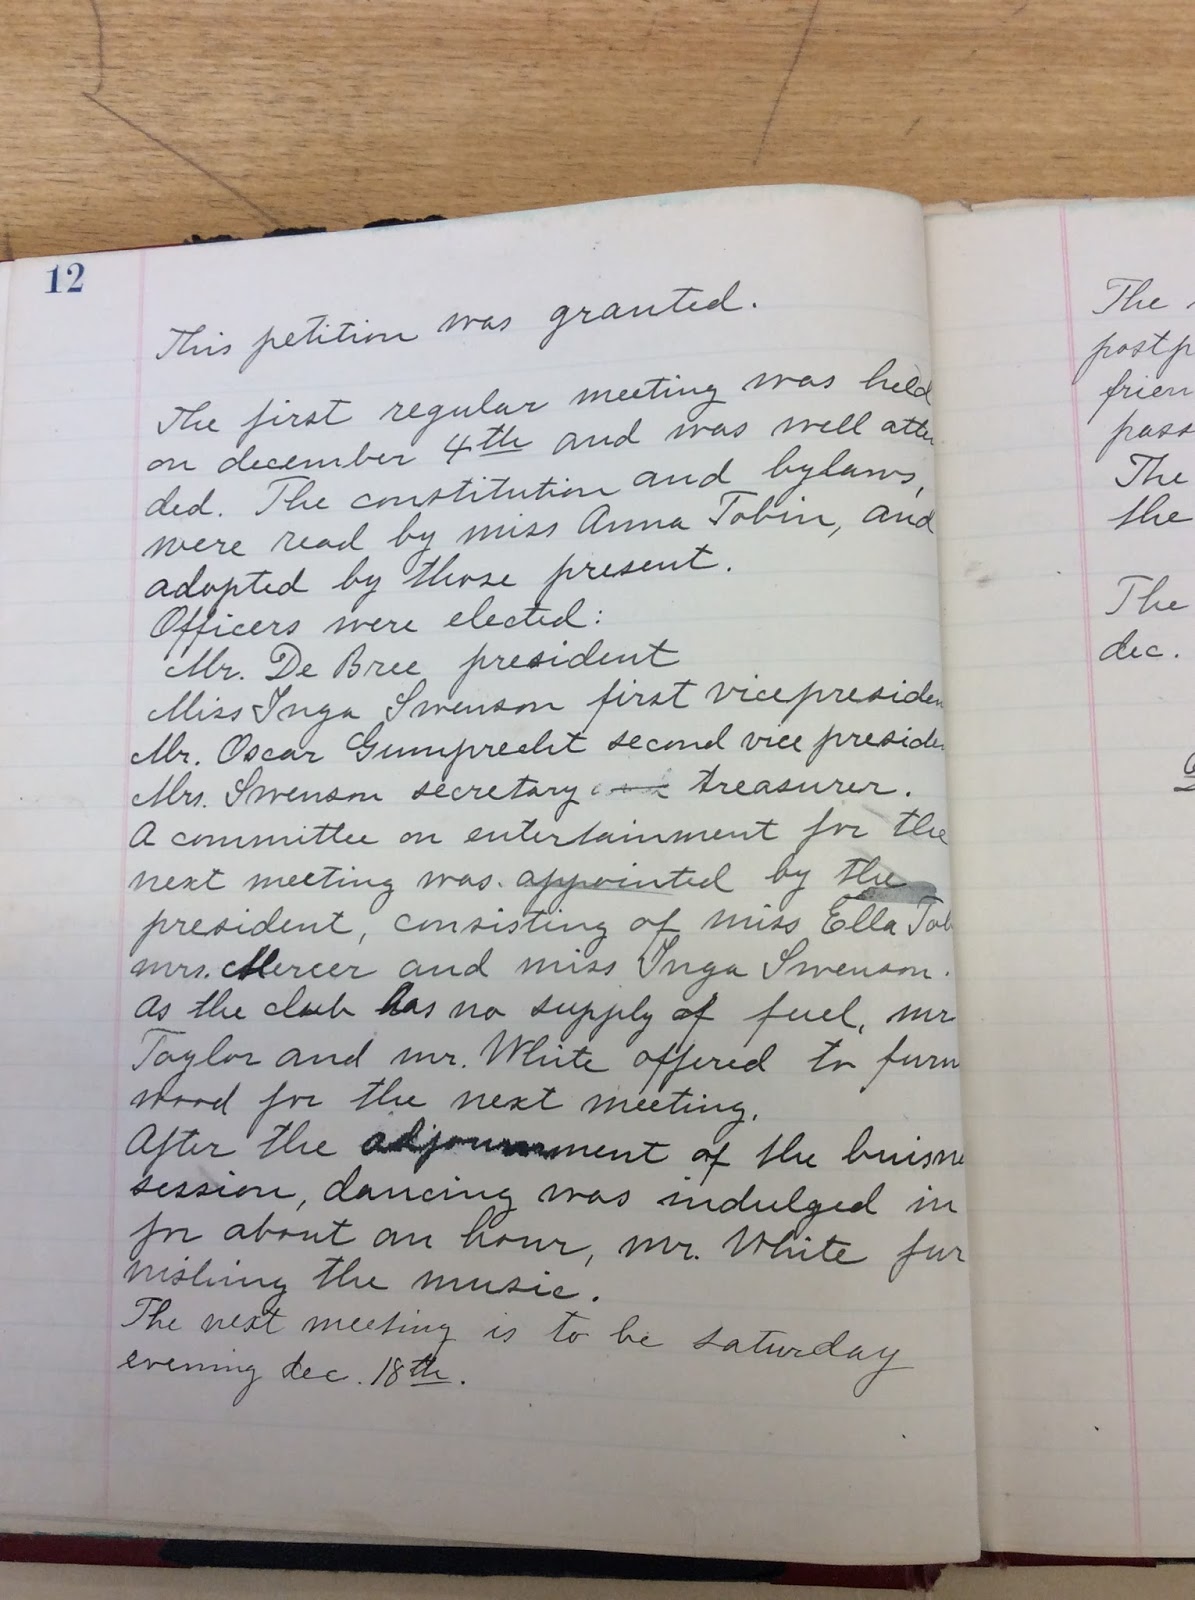 12
This petition was granted.
The first regular meeting was held
on december 4th and was well atten
ded. The constitution and bylaws,
were read by miss Anna Tobin, and
adopted by those present.
Officers were elected:
Mr. De Bree president
Miss Inga Swenson first vicepresiden
Mr. Oscar Gumprecht second vice preside
Mrs. Swenson secretary treasurer.
A committee on entertainment for the
next meeting was appointed by the
president, consisting of miss Ella Tob
mrs. Mercer and miss Inga Swenson.
As the club has no supply of fuel, mr
Taylor and mr. White offered to furn
wood for the next meeting.
After the adjournment of the buisne
session, dancing was indulged in
for about an hour, mr. White fur
nishing the music.
The next meeting is to be saturday
evening dec. 18th.
The
postp
frien
pass
The
the
The
dec.